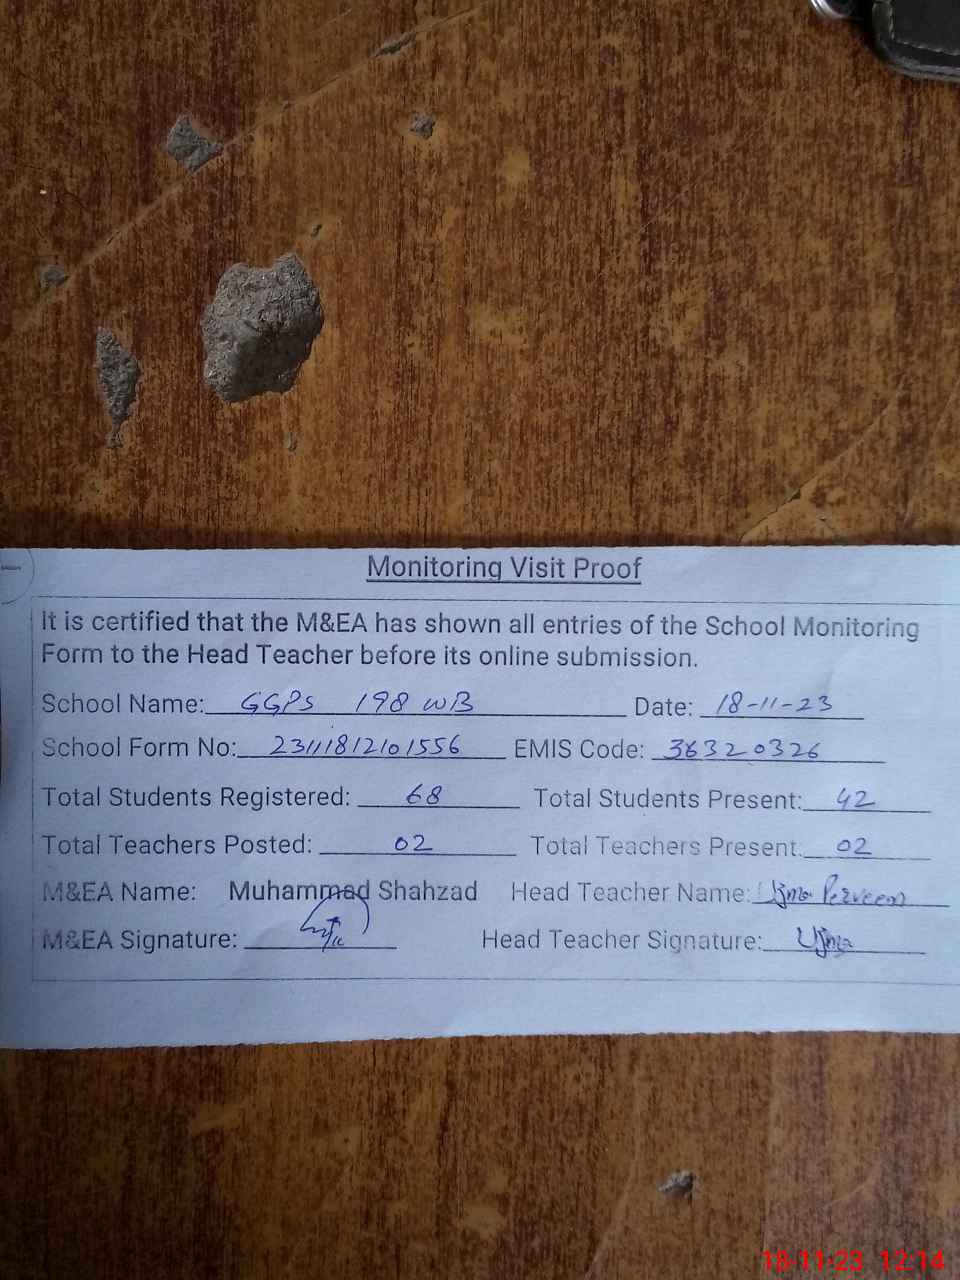 Monitoring Visit Proof
It is certified that the M&EA has shown all entries of the School Monitoring
Form to the Head Teacher before its online submission.
School Name: GGPS 198 WB Date: 18-11-23
School Form No: 23111812101556 EMIS Code: 36320326
Total Students Registered: 68 Total Students Present: 42
Total Teachers Posted: 02 Total Teachers Present: 02
M&EA Name: Muhammad Shahzad Head Teacher Name: Uzma Perveen
M&EA Signature: Head Teacher Signature: Uzma
18-11-23 12:14